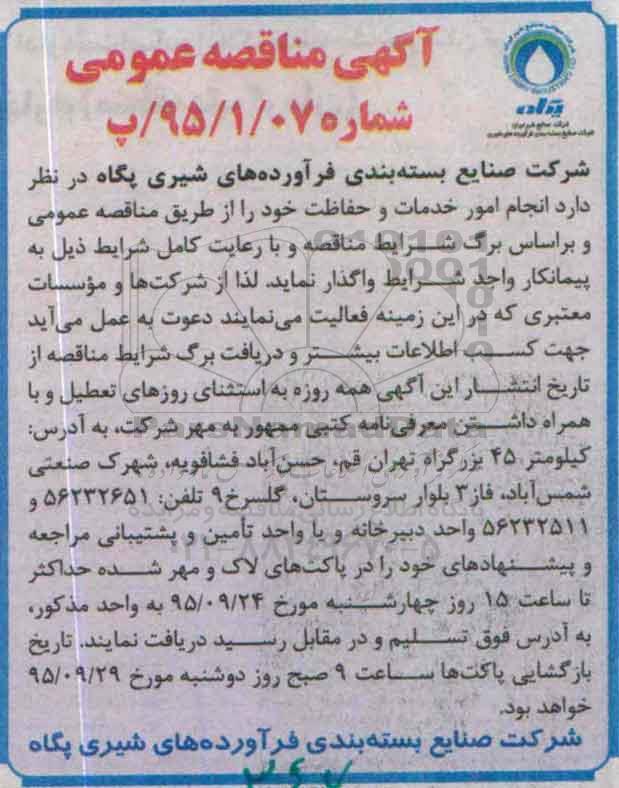 آگهی مناقصه عمومی
شماره ۹۵/۱/۰۷/پ
پگاه
شرکت صنایع شیر ایران
شرکت صنایع بسته‌بندی فرآورده‌های شیری
شرکت صنایع بسته‌بندی فرآورده‌های شیری پگاه در نظر
دارد انجام امور خدمات و حفاظت خود را از طریق مناقصه عمومی
و براساس برگ شرایط مناقصه و با رعایت کامل شرایط ذیل به
پیمانکار واجد شرایط واگذار نماید. لذا از شرکت‌ها و مؤسسات
معتبری که در این زمینه فعالیت می‌نمایند دعوت به عمل می‌آید
جهت کسب اطلاعات بیشتر و دریافت برگ شرایط مناقصه از
تاریخ انتشار این آگهی همه روزه به استثنای روزهای تعطیل و با
همراه داشتن معرفی‌نامه کتبی ممهور به مهر شرکت، به آدرس:
کیلومتر ۴۵ بزرگراه تهران قم، حسن‌آباد فشافویه، شهرک صنعتی
شمس‌آباد، فاز۳ بلوار سروستان، گلسرخ۹ تلفن: ۵۶۲۳۲۶۵۱ و
۵۶۲۳۲۵۱۱ واحد دبیرخانه و یا واحد تأمین و پشتیبانی مراجعه
و پیشنهادهای خود را در پاکت‌های لاک و مهر شده حداکثر
تا ساعت ۱۵ روز چهارشنبه مورخ ۹۵/۰۹/۲۴ به واحد مذکور،
به آدرس فوق تسلیم و در مقابل رسید دریافت نمایند. تاریخ
بازگشایی پاکت‌ها ساعت ۹ صبح روز دوشنبه مورخ ۹۵/۰۹/۲۹
خواهد بود.
شرکت صنایع بسته‌بندی فرآورده‌های شیری پگاه
ParsNamadData
پایگاه اطلاع رسانی مناقصه و مزایده